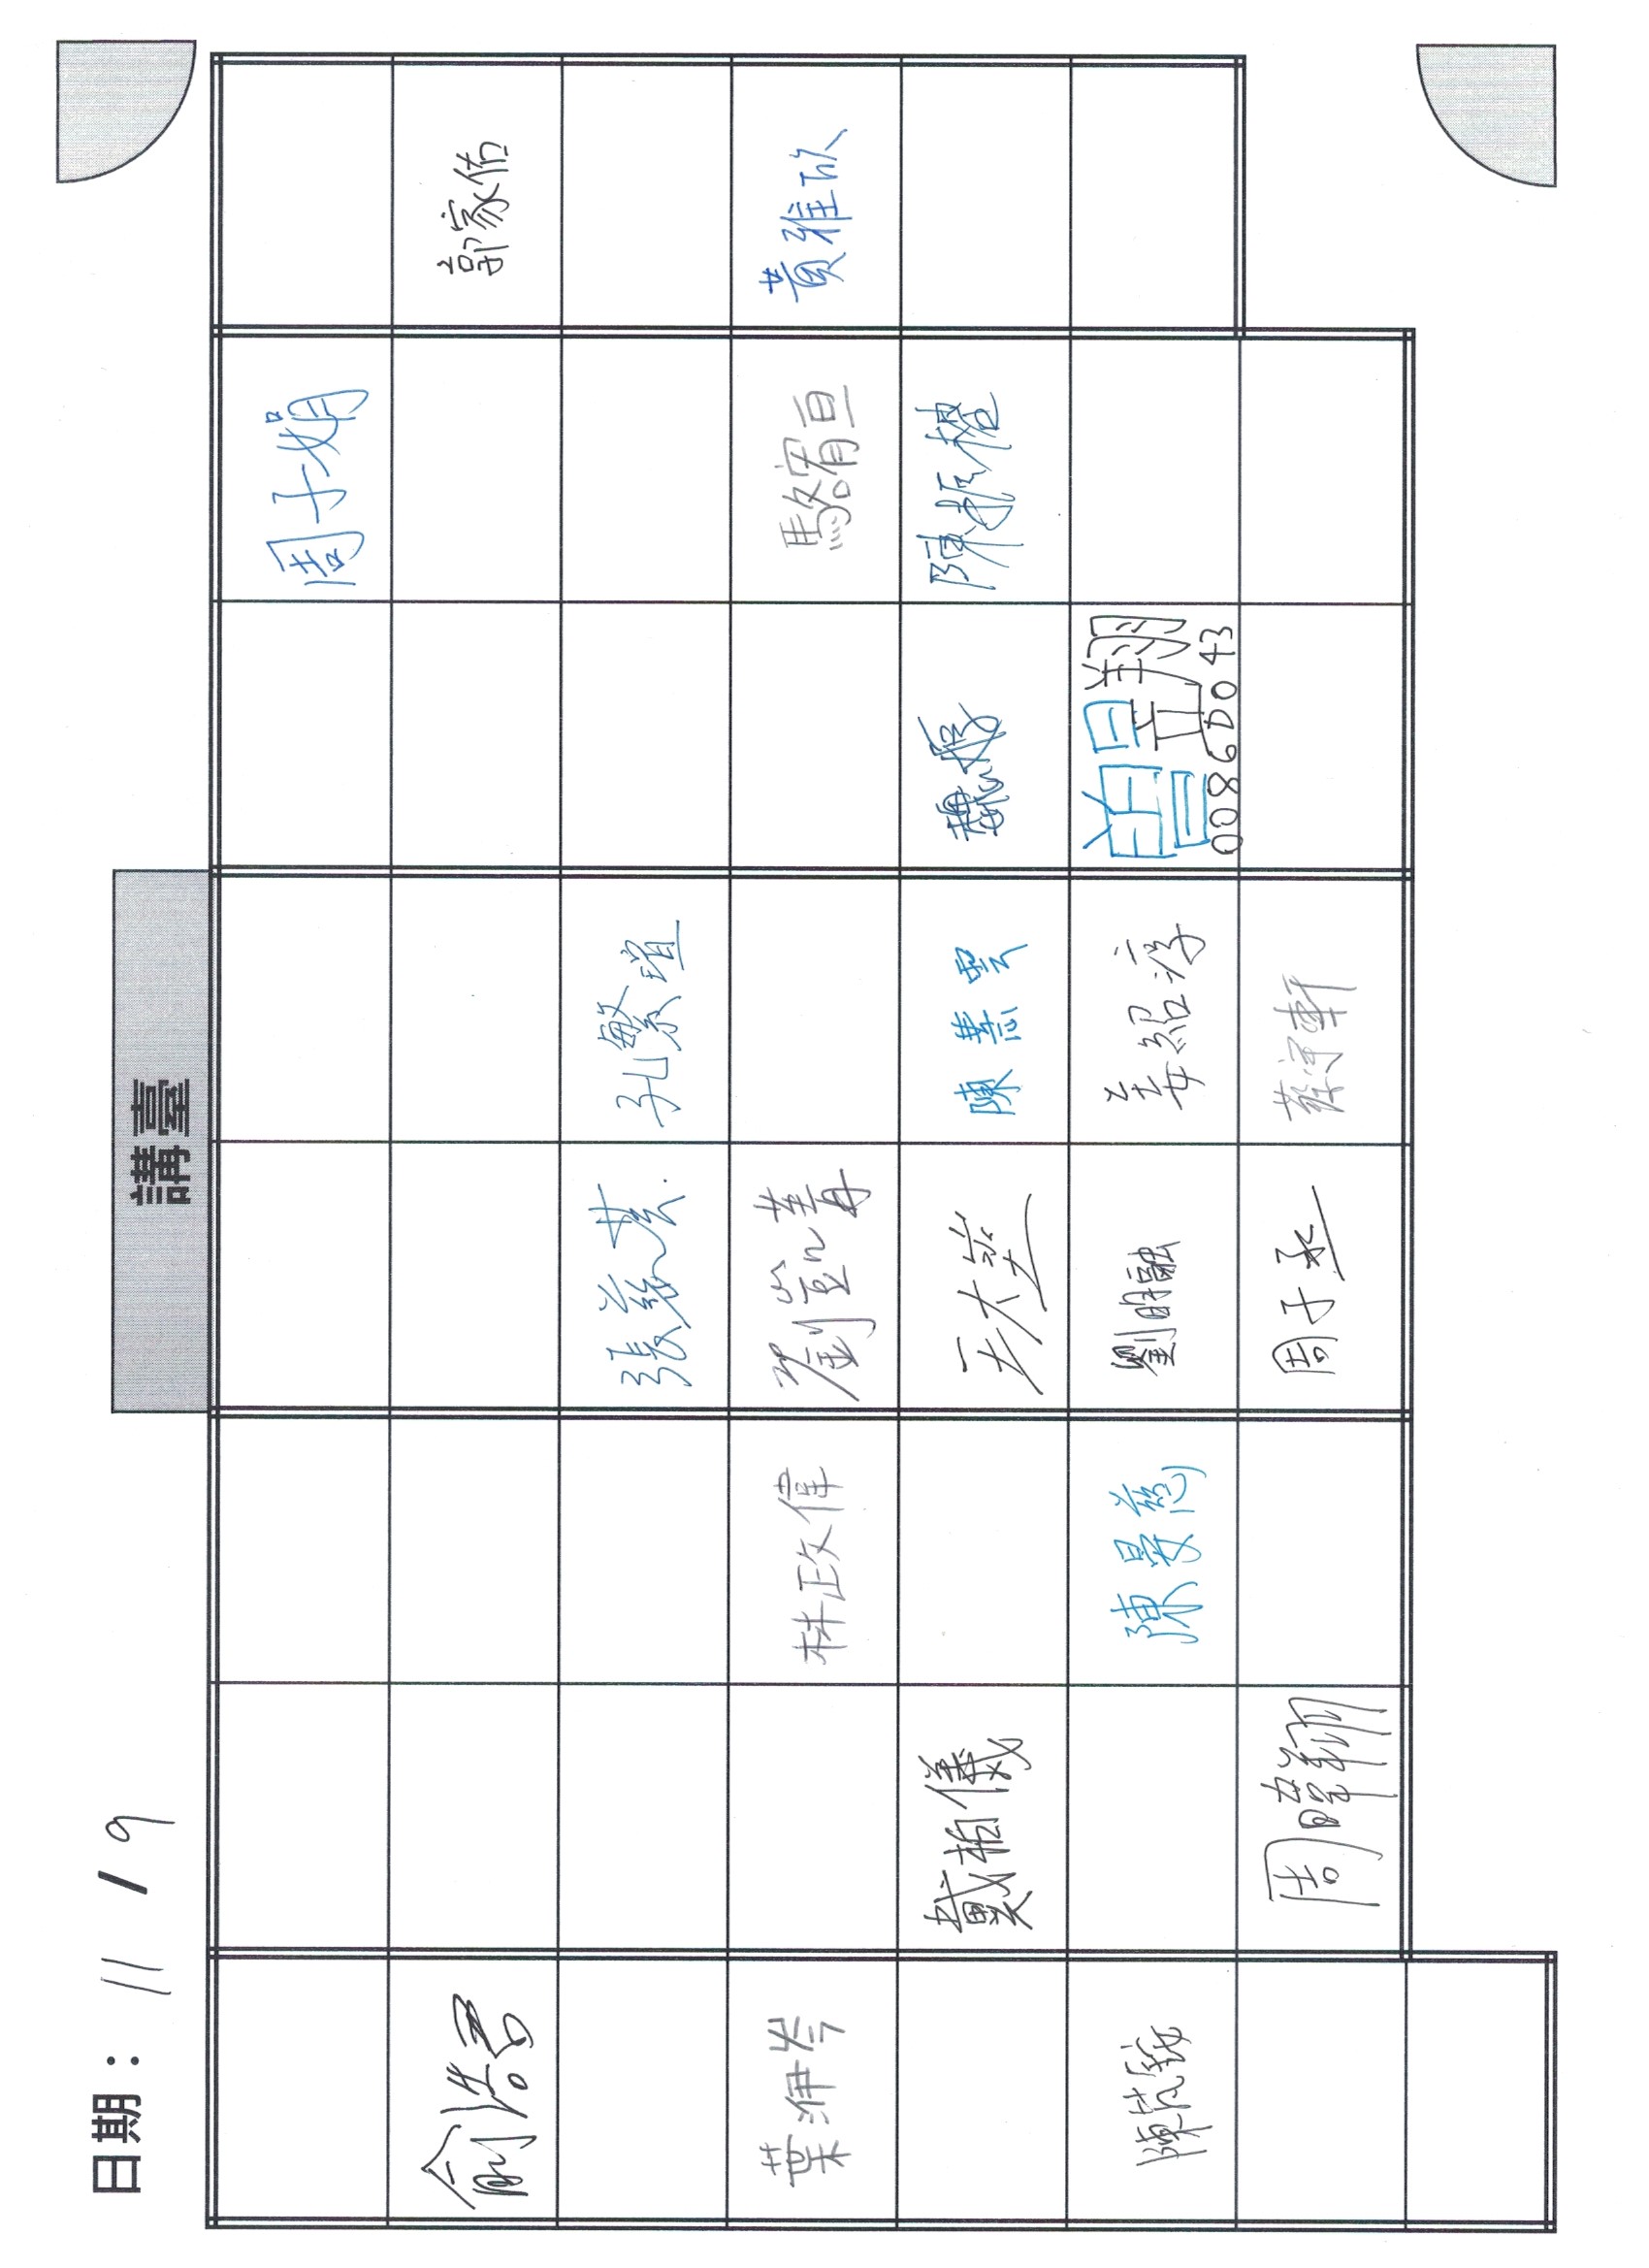 日期： 11 / 9
講臺
周子娟
俞浩君
郭家佑
張慈芸
孔繁瑄
葉洢岑
林政偉
劉凱菁
駱宥亘
黃雅欣
戴柏儀
王大
陳慧雲
魏
陳振
陳芃
陳晏慈
劉明融
姜紹淳
曾昱翔
0086D043
周暐翔
周子丞
蔡宇軒